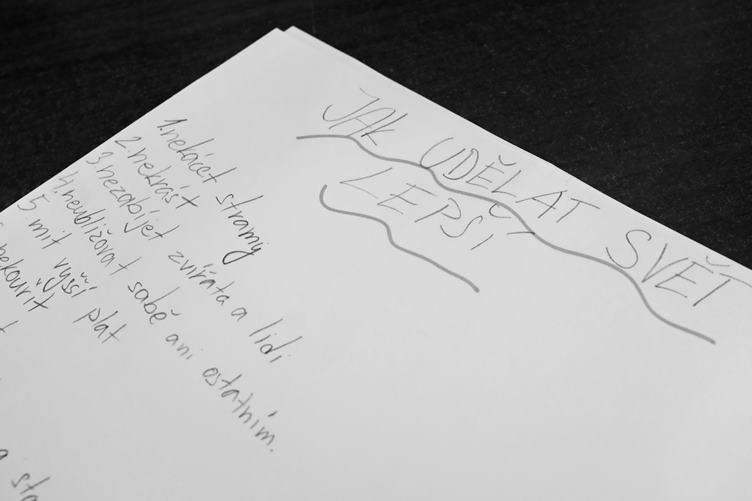 JAK UDĚLAT SVĚT
LEPŠÍ
1. nekácet stramy
2. nekrást
3 nezabíjet zvířáta a lidi
4. neubližovat sabě ani ostatním.
5 mít vyšší plat
nekouřit
a